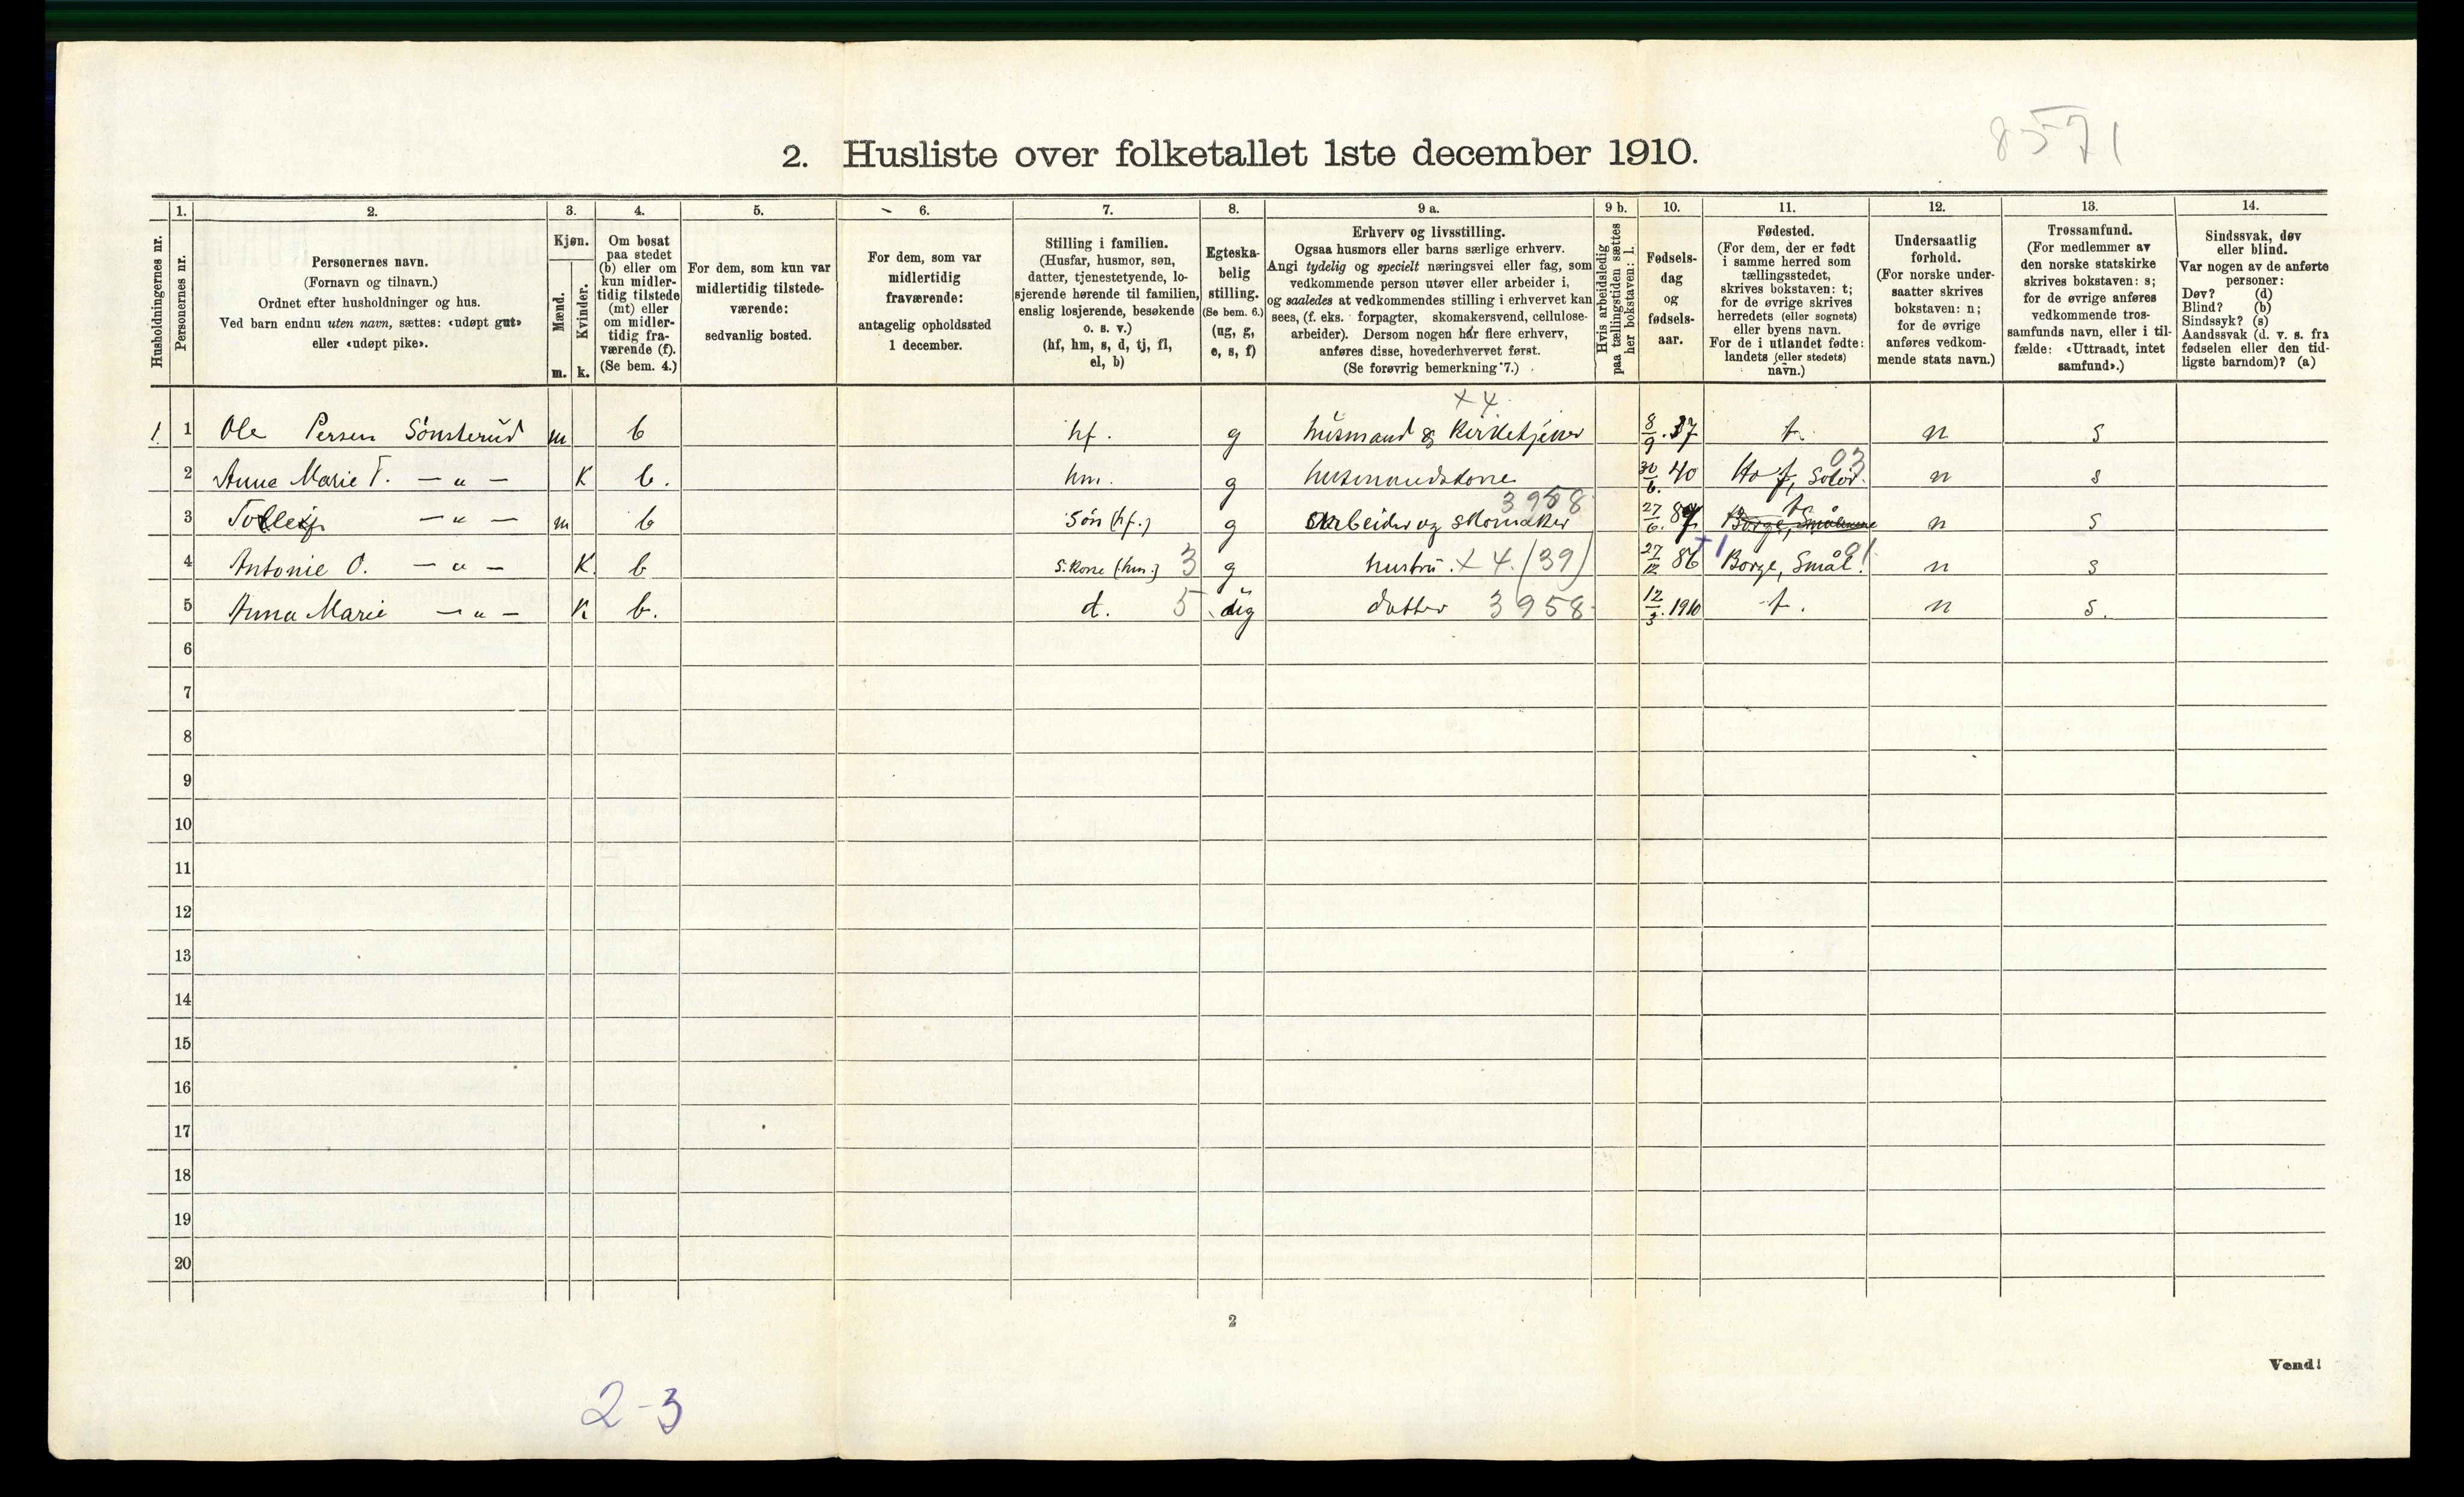 8571
2. Husliste over folketallet 1ste december 1910.
Husholdningernes nr.
1.
Personernes nr.
2.
Personernes navn.
(Fornavn og tilnavn.)
Ordnet efter husholdninger og hus.
Ved barn endnu uten navn, sættes: «udøpt gut»
eller «udøpt pike».
3.
Kjøn.
Mænd.
Kvinder.
m. k.
4.
Om bosat
paa stedet
(b) eller om
kun midler-
tidig tilstede
(mt) eller
om midler-
tidig fra-
værende (f).
(Se bem. 4.)
5.
For dem, som kun var
midlertidig tilstede-
værende:
sedvanlig bosted.
6.
For dem, som var
midlertidig
fraværende:
antagelig opholdssted
1 december.
7.
Stilling i familien.
(Husfar, husmor, søn,
datter, tjenestetyende, lo-
sjerende hørende til familien,
enslig losjerende, besøkende
o. s. v.)
(hf, hm, s, d, tj, fl,
el, b)
8.
Egteska-
belig
stilling.
(Se bem. 6.)
(ug, g,
e, s, f)
9 a.
Erhverv og livsstilling.
Ogsaa husmors eller barns særlige erhverv.
Angi tydelig og specielt næringsvei eller fag, som
vedkommende person utøver eller arbeider i,
og saaledes at vedkommendes stilling i erhvervet kan
sees, (f. eks. forpagter, skomakersvend, cellulose-
arbeider). Dersom nogen har flere erhverv,
anføres disse, hovederhvervet først.
(Se forøvrig bemerkning 7.)
9 b.
Hvis arbeidsledig
paa tællingstiden sættes
her bokstaven: l.
10.
Fødsels-
dag
og
fødsels-
aar.
11.
Fødested.
(For dem, der er født
i samme herred som
tællingsstedet,
skrives bokstaven: t;
for de øvrige skrives
herredets (eller sognets)
eller byens navn.
For de i utlandet fødte:
landets (eller stedets)
navn.)
12.
Undersaatlig
forhold.
(For norske under-
saatter skrives
bokstaven: n;
for de øvrige
anføres vedkom-
mende stats navn.)
13.
Trossamfund.
(For medlemmer av
den norske statskirke
skrives bokstaven: s;
for de øvrige anføres
vedkommende tros-
samfunds navn, eller i til-
fælde: «Uttraadt, intet
samfund».)
14.
Sindssvak, døv
eller blind.
Var nogen av de anførte
personer:
Døv? (d)
Blind? (b)
Sindssyk? (s)
Aandssvak (d. v. s. fra
fødselen eller den tid-
ligste barndom)? (a)
x 4
1. 1 Ole Persen Sønsterud m b hf. g husmand & Kirketjener 8/9.37 t. n s
2 Anna Marie T. — " — K b. hm. g husmandskone 30/6. 40 Hof, Solør. 03 n s
3958
3 Tolleif — " — m b Søn (hf.) g Arbeider og skomaker 27/6. 87 t. Borge, Smålenene n s
4 Antonie O. — " — K. b S. kone (hm.) 3 g hustru. x 4. (39) 27/12 86 +1 Borge, Smål. 01 n s
5 Anna Marie — " — K b. d. 5 ug datter 3958 12/3. 1910 t. n s.
6
7
8
9
10
11
12
13
14
15
16
17
18
19
20
2
Vend!
2-3